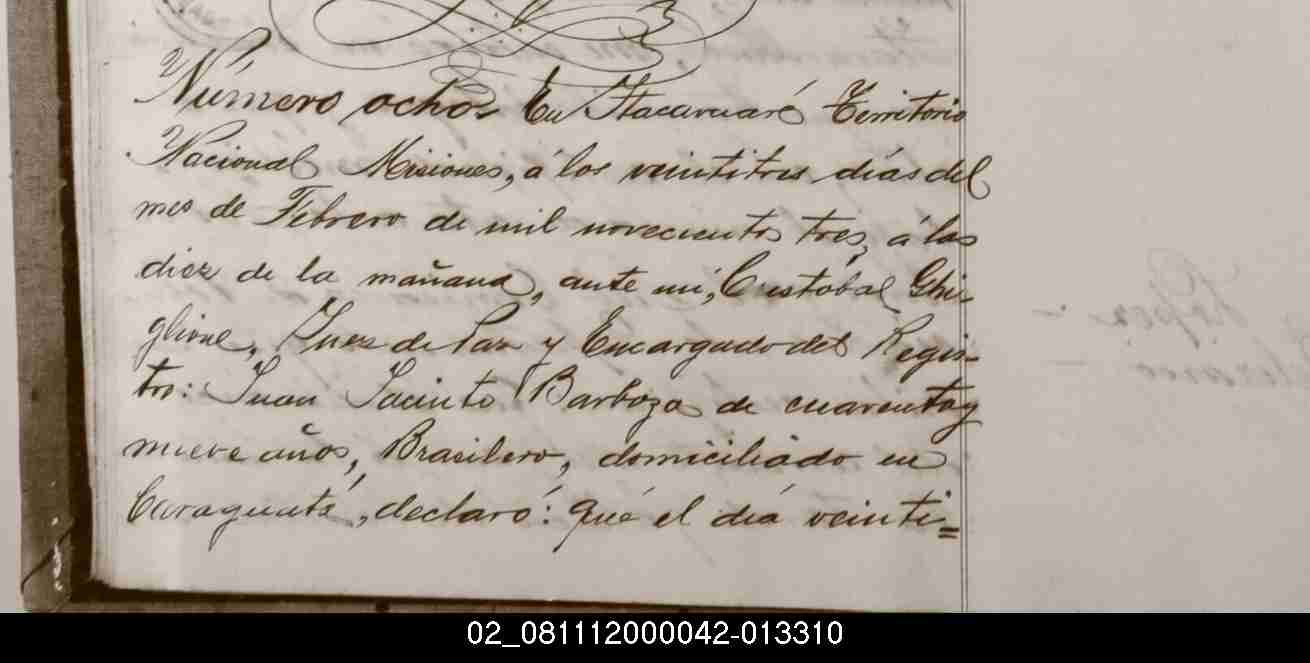 Número ocho En Itacaruaré Territorio
Nacional Misiones, á los veintitres días del
mes de Febrero de mil novecientos tres, á las
diez de la mañana, ante mi, Cristóbal Ghi-
glione, Juez de Paz y Encargado del Regis-
tro: Juan Jacinto Barboza de cuarenta y
nueve años, Brasilero, domiciliado en
Caraguatá, declaró: Que el día veinti=
02_081112000042-013310